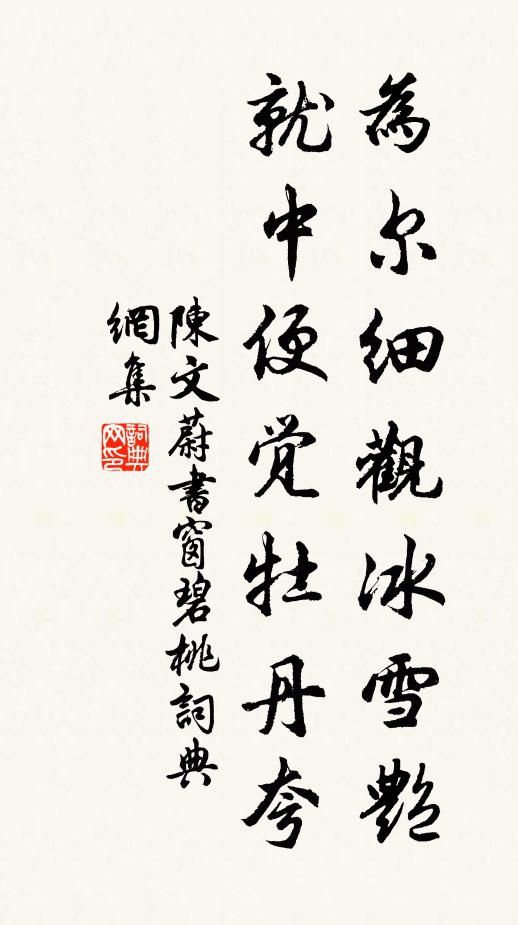 為尔細觀冰雪艷
就中便覺牡丹夸
陳文蔚書窗碧桃詞典
網集
詞典
网印